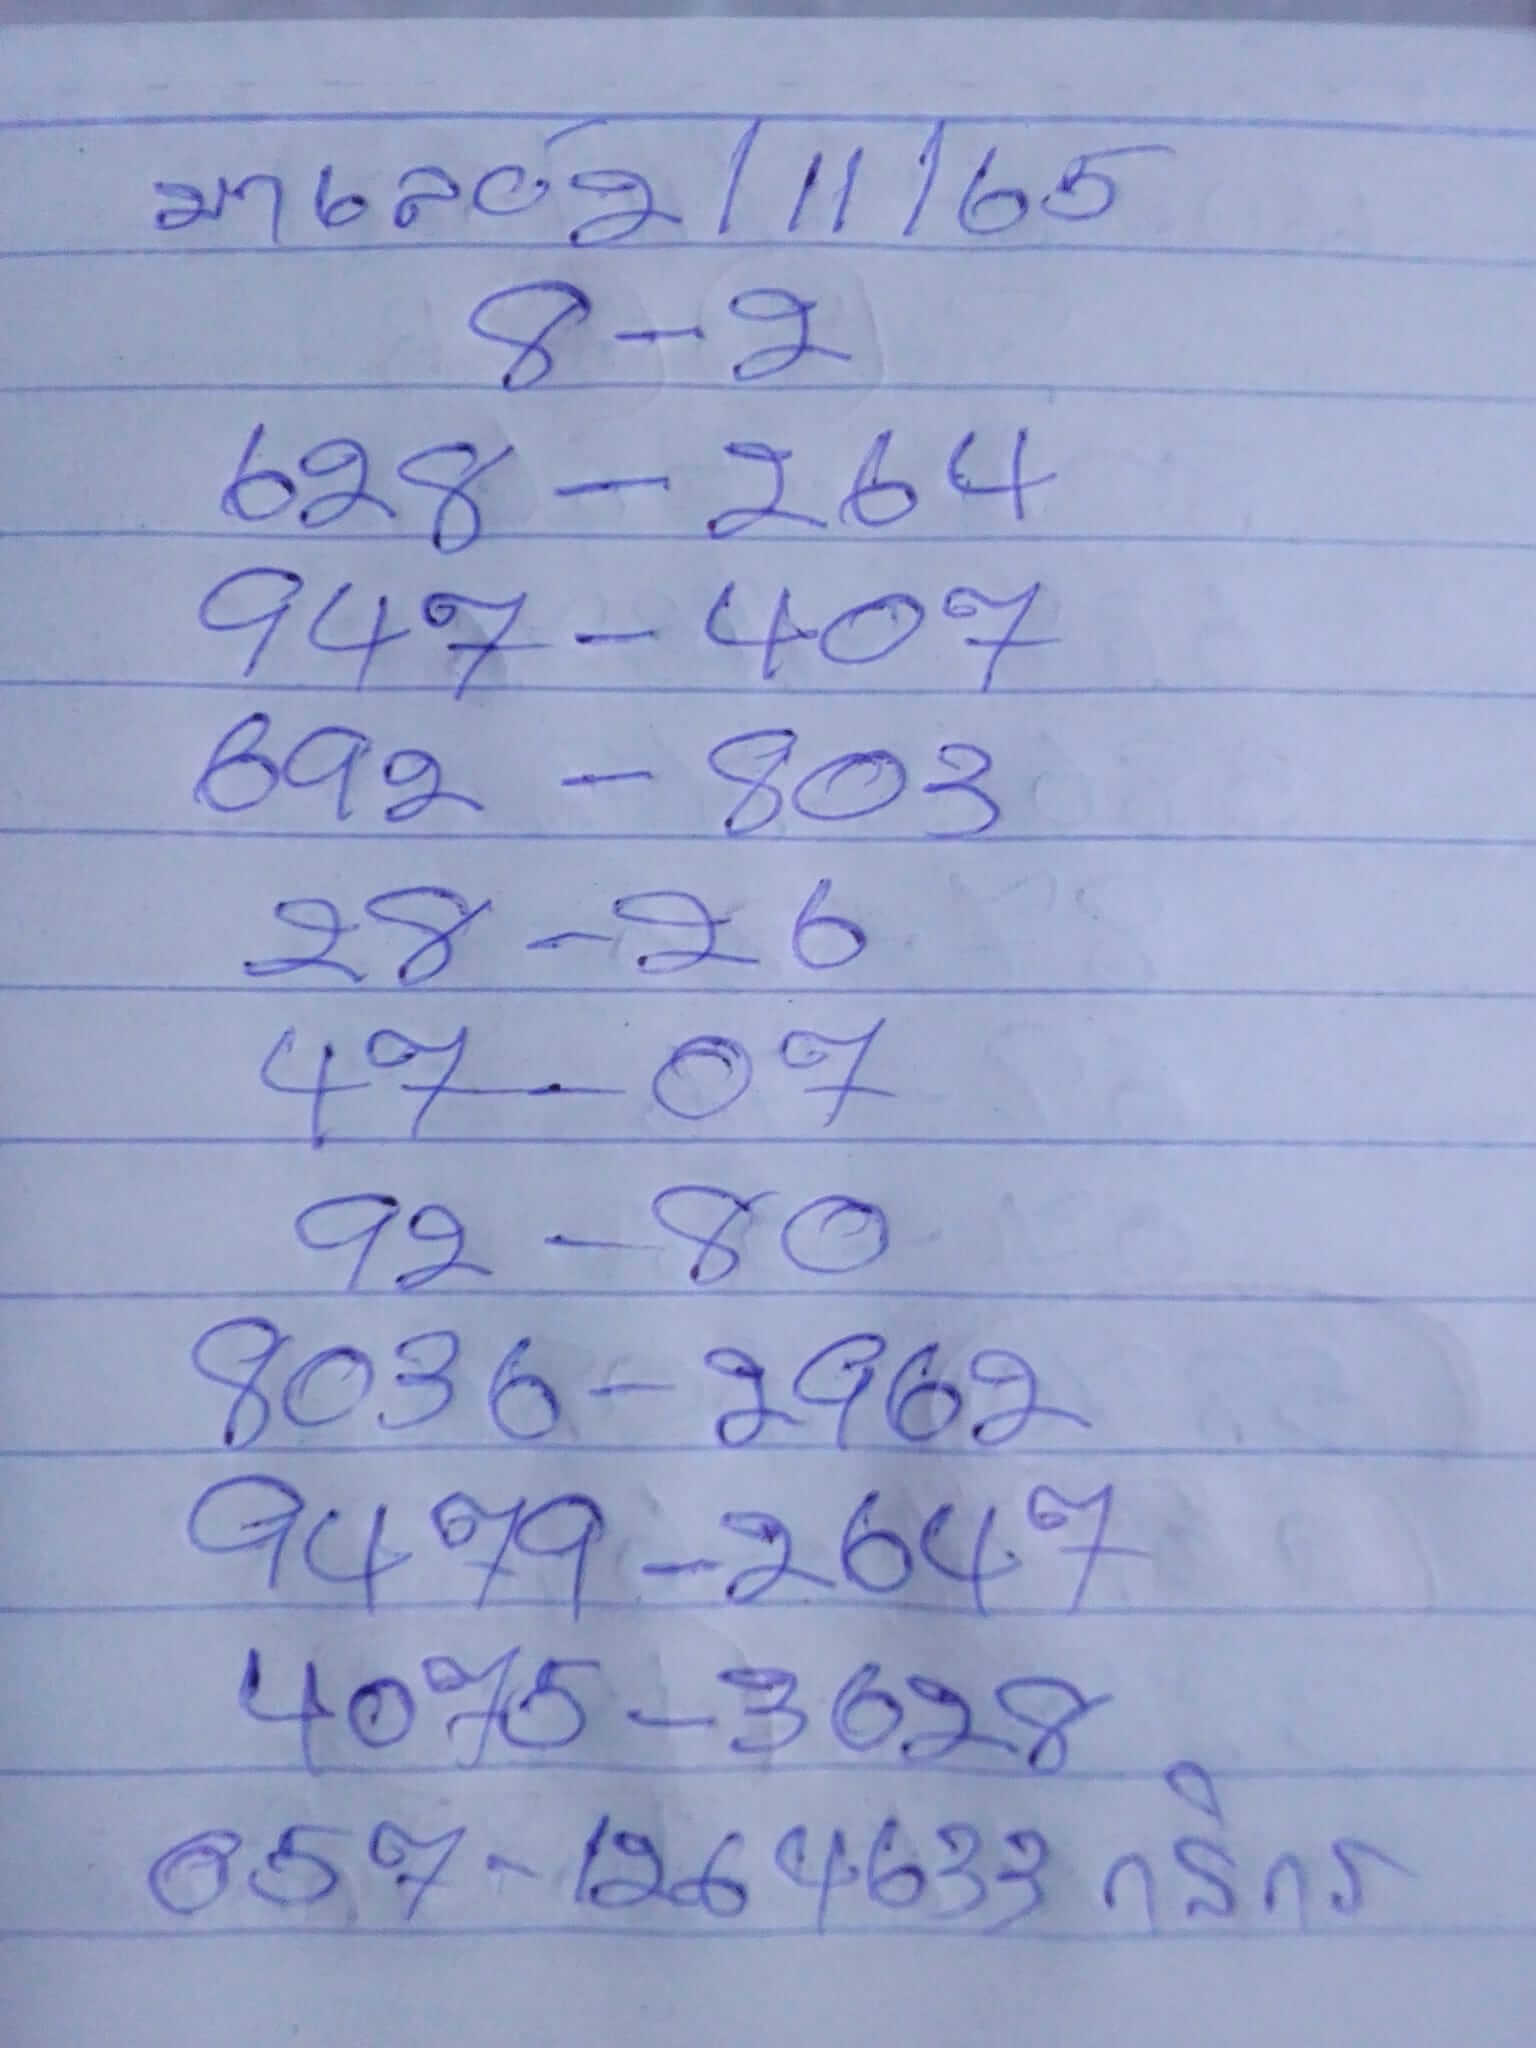 มาเลย์2/11/65
8-2
628-264
947-407
692-803
28-26
47-07
92-80
8036-2962
9479-2647
4075-3628
057-1264633 กสิกร